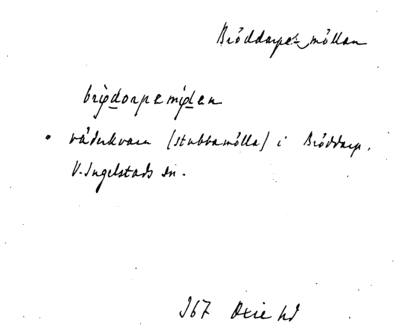 Bröddarpe-möllan
brødorpemølen
• väderkvarn (stubbamölla) i Bröddarp,
V. Ingelstads sn.
367 Oxie hd